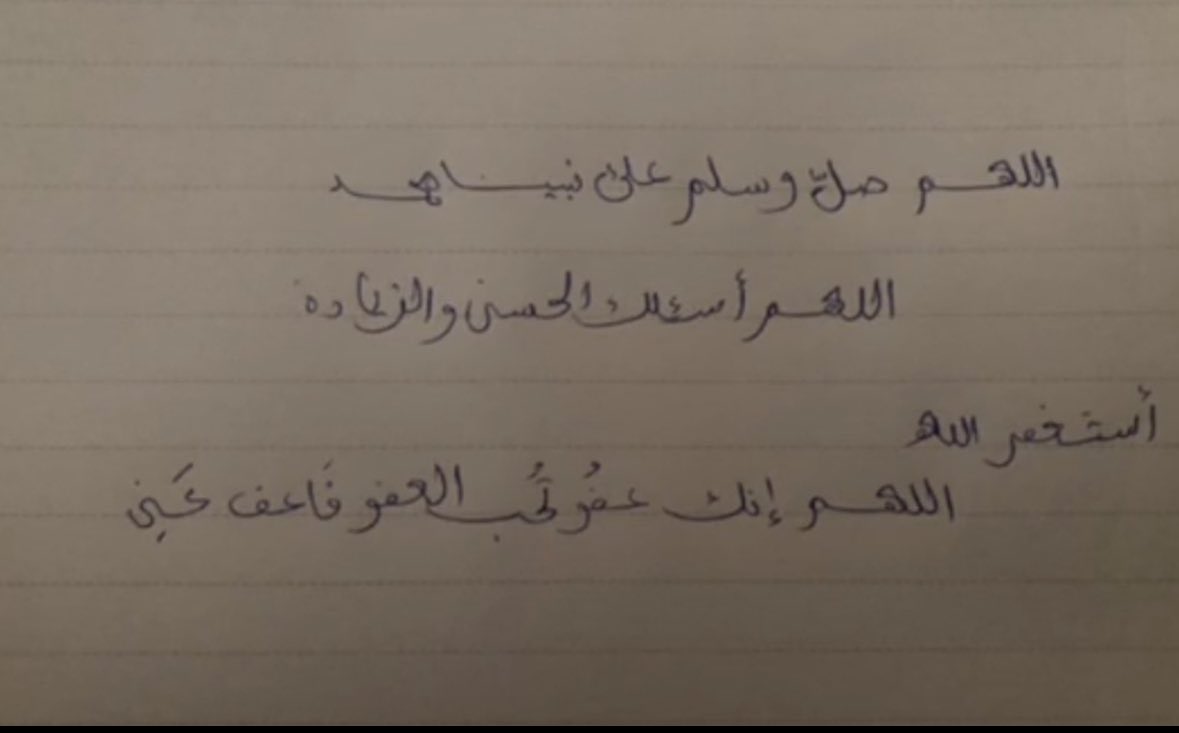 اللهم صلّ وسلم على نبينا محمد
اللهم أسئلك الحسنى والزيادة
أستغفر الله
اللهم إنك عفُوُ تُحب العفو فَاعف عَنِي